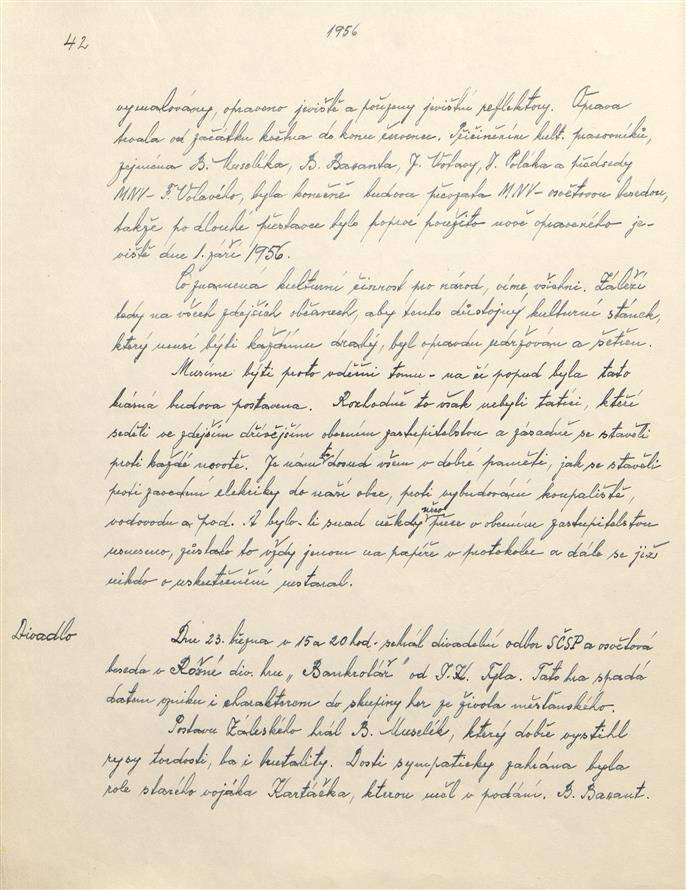 42
1956
vymalovány, opraveno jeviště a pořízeny jevištní reflektory. Oprava
trvala od začátku května do konce července. Přičiněním kult. pracovníků,
zejména B. Muselíka, B. Basanta, J. Votavy, J. Poláka a předsedy
MNV - F. Volavého, byla konečně budova převzata MNV - osvětovou besedou,
takže po dlouhé přestávce bylo poprvé použito nově opraveného je-
viště dne 1. září 1956.
Co znamená kulturní činnost pro národ, víme všichni. Záleží
tedy na všech zdejších občanech, aby tento důstojný kulturní stánek,
který musí býti každému drahý, byl opravdu udržován a šetřen.
Musíme býti proto vděčni tomu - na čí popud byla tato
krásná budova postavena. Rozhodně to však nebyli tatíci, kteří
seděli ve zdejším dřívějším obecním zastupitelstvu a zásadně se stavěli
proti každé novotě. Je nám to dosud všem v dobré paměti, jak se stavěli
proti zavedení elektriky do naší obce, proti vybudování koupaliště,
vodovodu a pod. A bylo-li snad někdy něco přece v obecním zastupitelstvu
usneseno, zůstalo to vždy jenom na papíře v protokole a dále se již
nikdo o uskutečnění nestaral.
Divadlo
Dne 23. března v 15 a 20 hod. sehrál divadelní odbor SČSP a osvětová
beseda v Růžné div. hru „Bankrotář" od J. K. Tyla. Tato hra spadá
datem vzniku i charakterem do skupiny her ze života měšťanského.
Postavu Záleského hrál B. Muselík, který dobře vystihl
rysy tvrdosti, ba i brutality. Dosti sympaticky zahrána byla
role starého vojáka Kartáčka, kterou měl v podání B. Basant.